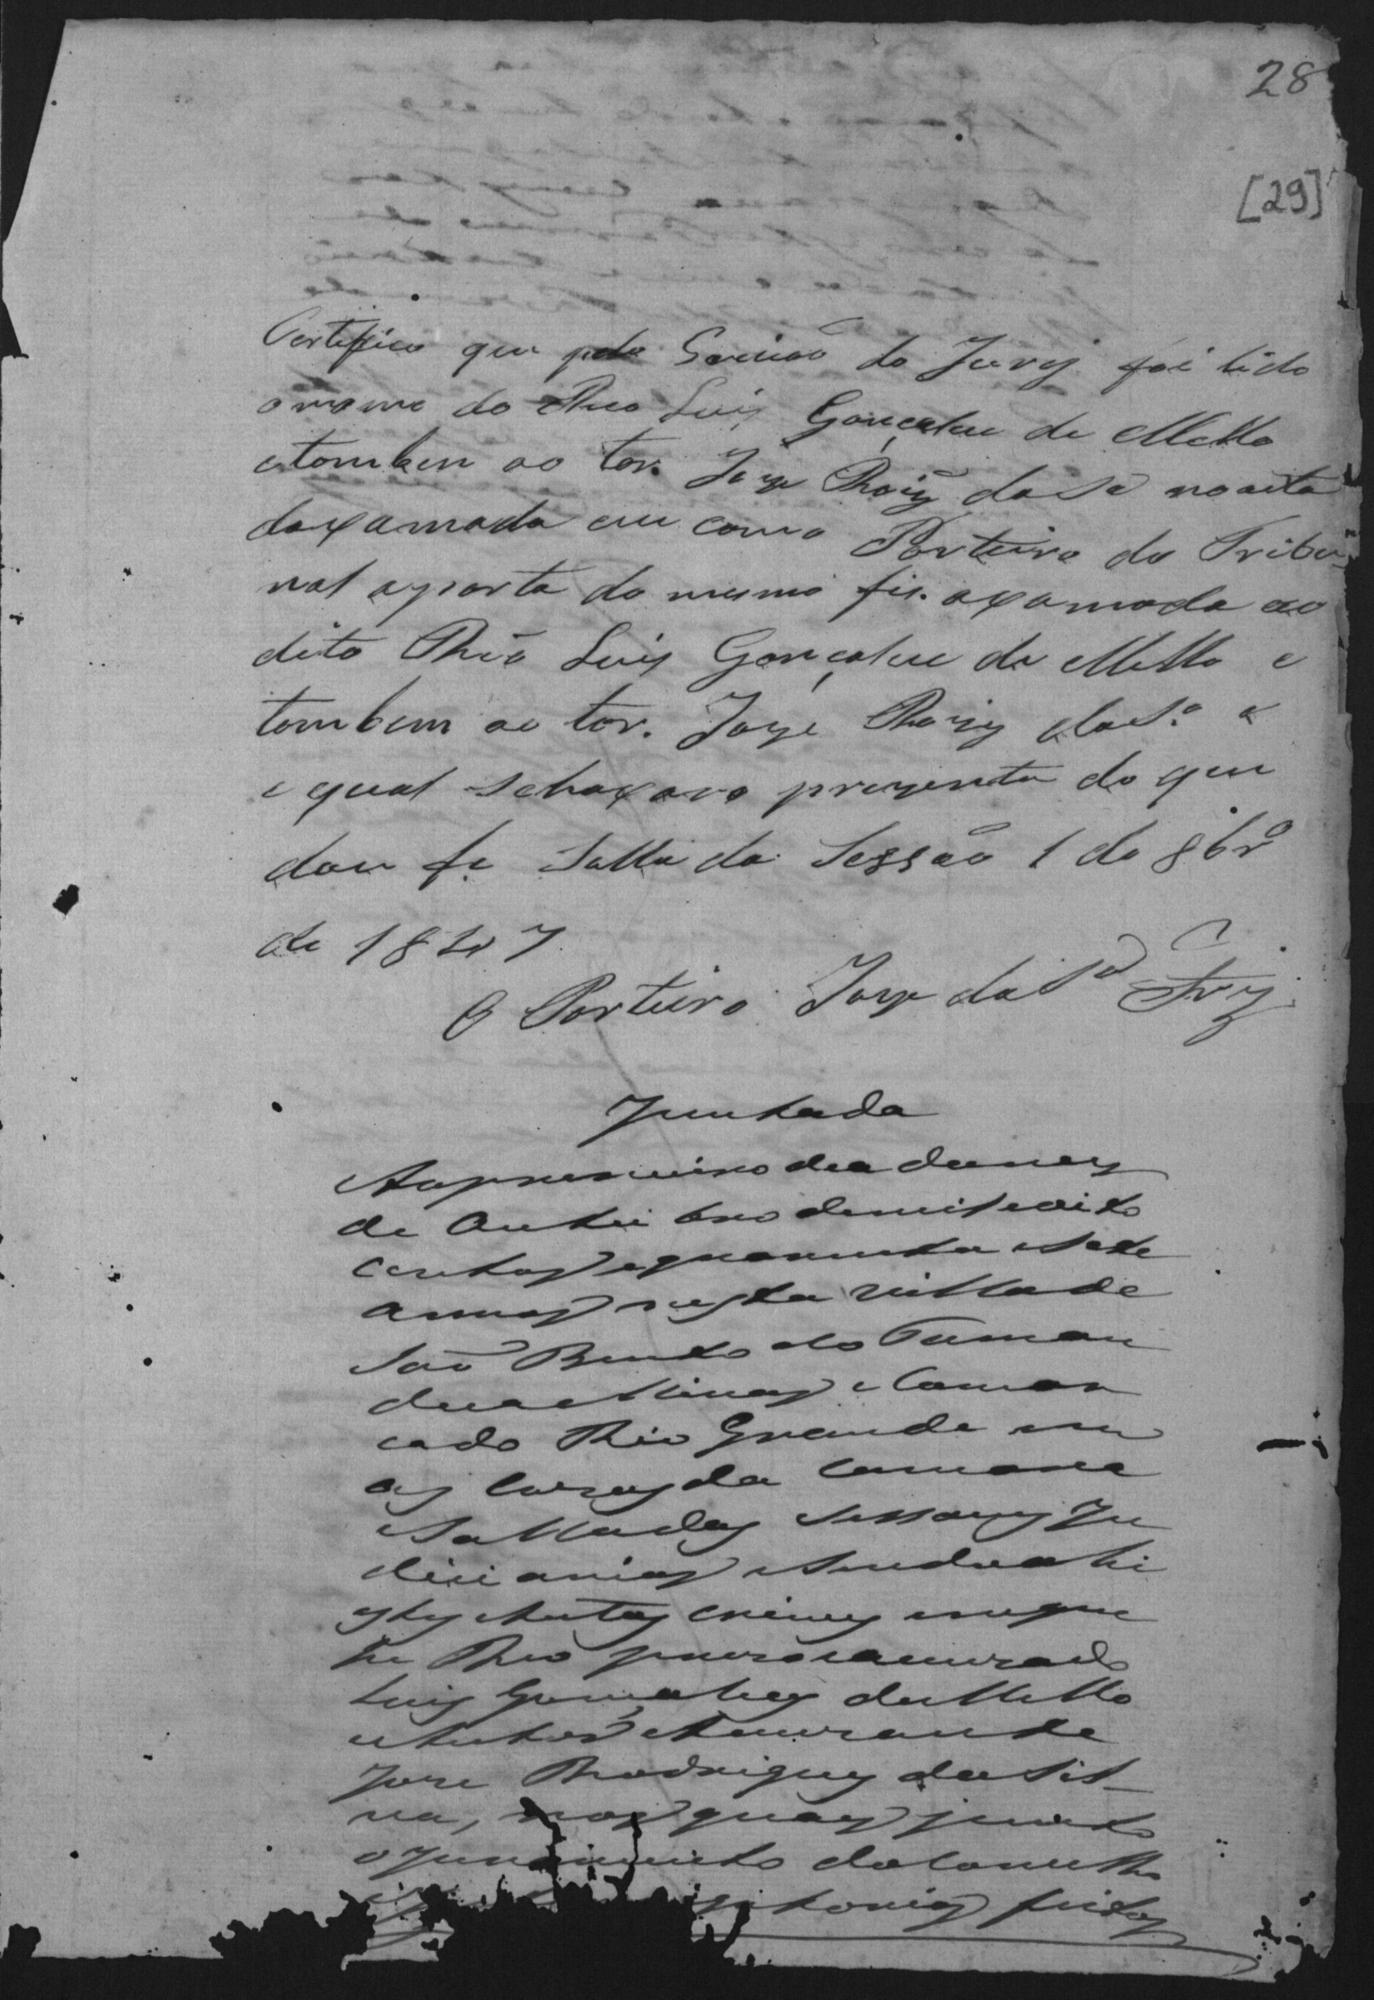 28
[29]
Certifico que pelo Escrivão do Jury foi lido
o nome do Reo Luis Gonçalvez de Mello
e tombem ao tor. Joze Roiz da Sa no acto
da xamada e eu como Porteiro do Tribu
nal a porta do mesmo fis axamada ao
dito Réo Luis Gonçalvez de Mello e
tombem ao tor. Joze Roiz da S.ª o
qual se achava prezente do que
dou fe Salla da Sessão 1 de 8br.º
de 1847
O Porteiro Joze da S.ª
Juntada
Ao primeiro dia do mez
de Outubro de mil e oito
centos e quarenta e sete
annos nesta Villa de
São Bento do Taman
dua Minas e Comar
ca do Rio Grande em
as Cazas da Camara
Salla das Sessoens Ju
diciarias e sendo ahi
estes Autos crimes em que
he Reo prezo acuzado
Luis Gonçalves de Mello
e Autor Acuzante
Joze Rodrigues da Sil-
va, nos quaes junto
o juramento do Conselho
fiz